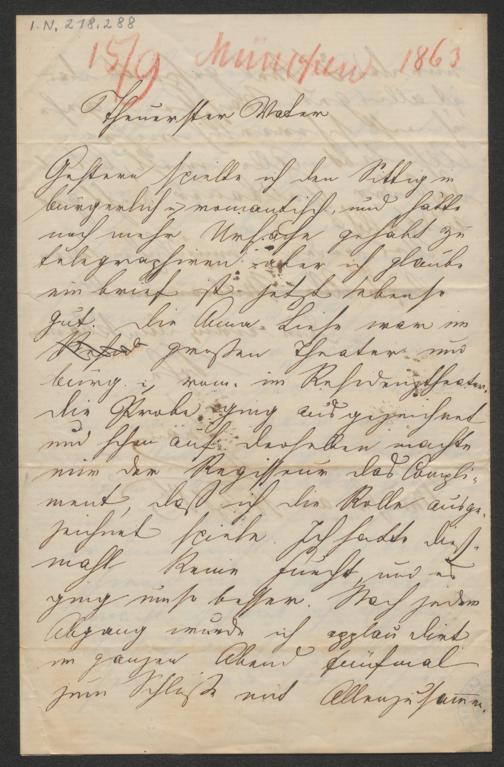 I.N. 218.288
15/9 München 1863
Theuerster Vater
Gestern spielte ich den Sittig in
bürgerlich u romantisch, und hätte
noch mehr Ursache gehabt zu
telegraphiren aber ich glaube
ein brief ist jetzt ebenso
gut. Die Anna-Liese war im
großen Theater und
bürg. u. rom. im Residenztheater.
Die Probe ging ausgezeichnet
und schon auf derselben machte
mir der Regisseur das Compli-
ment, daß ich die Rolle ausge-
zeichnet spiele. Ich hatte dies-
mahl keine Furcht, und es
ging umso besser. Nach jedem
Abgang wurde ich applaudirt
im ganzen Abend fünfmal
zum Schluße mit Allenzusamm.